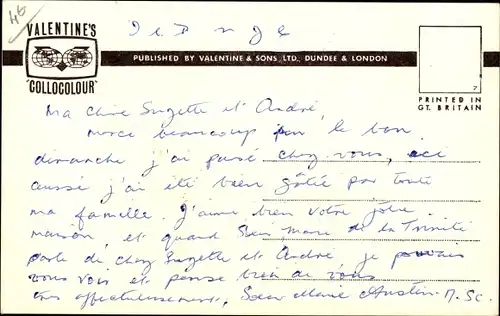 46
VALENTINE'S
"COLLOCOLOUR"
PUBLISHED BY VALENTINE & SONS, LTD., DUNDEE & LONDON
7
PRINTED IN
GT. BRITAIN
Ma chère Suzette et André,
merci beaucoup pour le bon
dimanche j'ai passé chez vous, ici
aussi j'ai été bien gâtée par toute
ma famille. J'aime bien votre jolie
maison, et quand Sœur Marie de la Trinité
parle de chez Suzette et André je pouvais
vous voir et pense bien de vous
très affectueusement, Sœur Marie Austin. M. Sc.